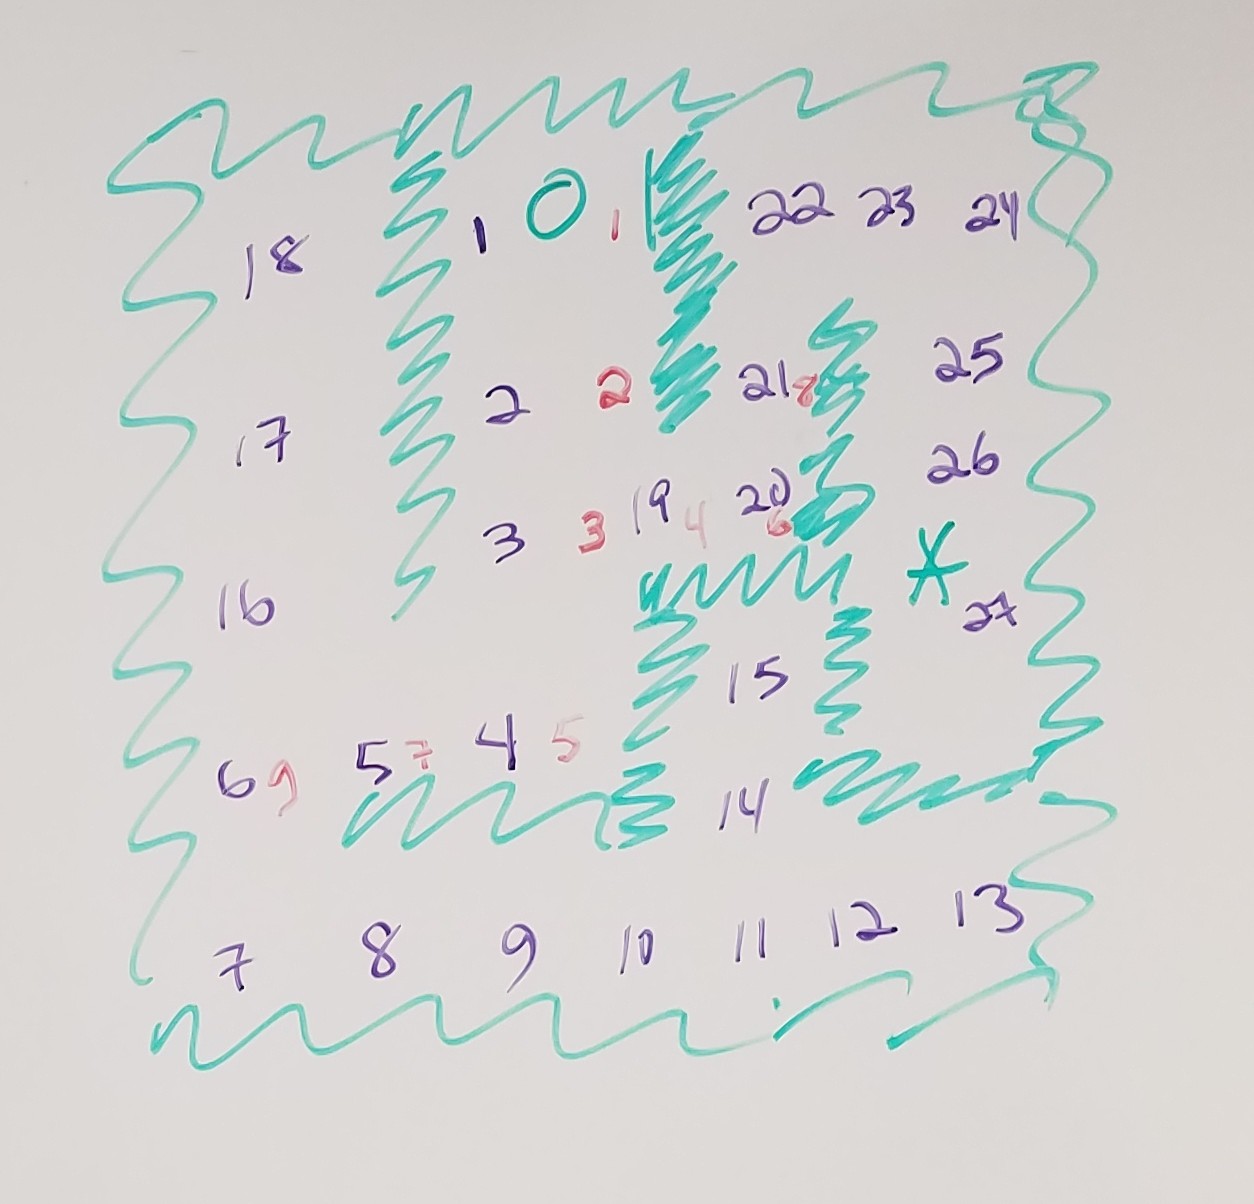 18 1 0 1 22 23 24
17 2 2 21 8 25
26
16 3 3 19 4 20 6
27
15
6 9 5 7 4 5
14
7 8 9 10 11 12 13